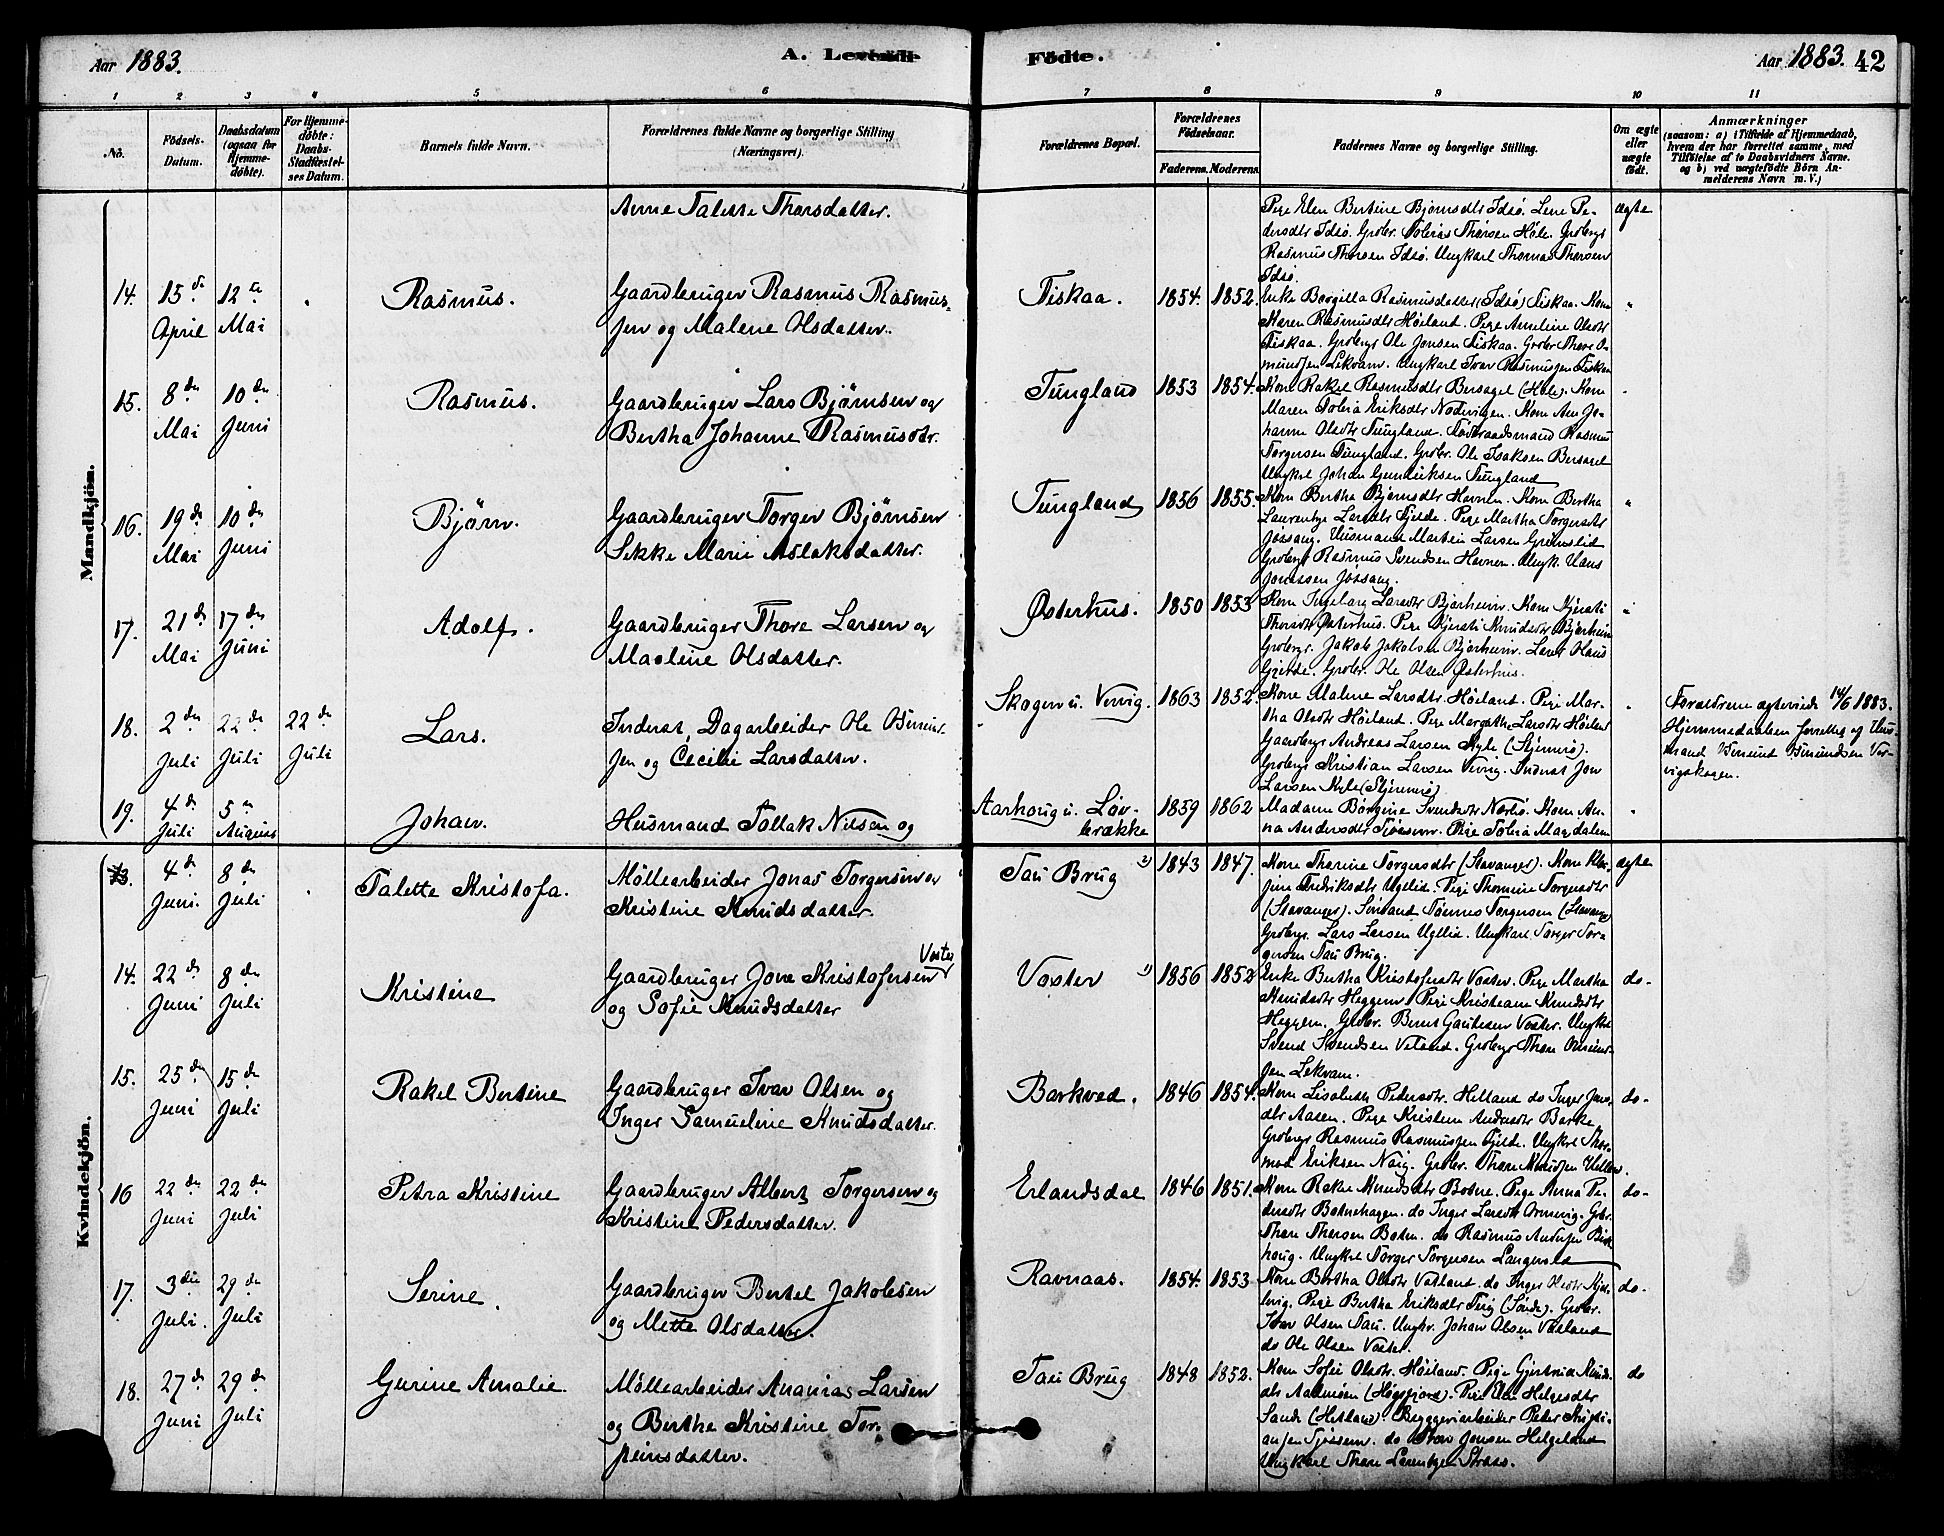 Aar 1883.
A. Levende
Fødte.
Aar 1883. 42
1 2 3 4 5 6 7 8 9 10 11
No.
Fødsels-Datum.
Daabsdatum (ogsaa for Hjemmedøbte).
For Hjemmedøbte: Daabs-Stadfæstelses Datum.
Barnets fulde Navn.
Forældrenes fulde Navne og borgerlige Stilling
(Næringsvei).
Forældrenes Bopæl.
Forældrenes Fødselsaar.
Faderens. Moderens.
Faddernes Navne og borgerlige Stilling.
Om ægte eller uægte født.
Anmærkninger
(saasom: a) i Tilfælde af Hjemmedaab,
hvem der har forrettet samme, med
Tilføielse af to Daabsvidners Navne.
og b) ved uægtefødte Børn An-
melderens Navn m. V.)
Mandkjön.
Anne Talette Thorsdatter.
Pige Elen Bertine Bjørnsdtr Idsø. Lene Pe-
dersdtr Idsø. Grdbr. Tobias Thorsen Høle. Grdbrgr
Rasmus Thorsen Idsø. Ungkarl Thomas Thorsen
Idsø.
ægte
14. 15de April 12te Mai
Rasmus.
Gaardbruger Rasmus Rasmus-
sen og Malene Olsdatter.
Fiskaa. 1854. 1852.
Enke Borgilla Rasmusdatter (Idsø) Fiskaa. Kone
Maren Rasmusdtr Høiland. Pige Anneline Olsdtr
Fiskaa. Grdbrgr Ole Jonsen Fiskaa. Grdbr Thore O-
mundsen Lekvam. Ungkarl Ivar Rasmussen Fiskaa
15. 8de Mai 10de Juni
Rasmus.
Gaardbruger Lars Bjørnsen og
Bertha Johanne Rasmusdtr.
Tungland 1853 1854.
Kone Rakel Rasmusdtr Bersagel (Høle). Kone
Maren Tobia Eriksdtr Nødvigen. Kone Ane Jo-
hanne Olsdtr Tungland. Rasmus
Torgersen Tungland. Grdbr. Ole Isaksen Bersagel
Ungkrl Johan Tungland
16. 19de Mai 10de Juni
Bjørn.
Gaardbruger Torger Bjørnsen
Sikke Marie Aslaksdatter.
Tungland 1856 1855.
Kone Bertha Bjørnsdtr Havnen. Kone Bertha
Larsdtr Fjelde. Pige Martha Torgersdtr
Jøssang. Husmand Martin Larsen
Grdbrgr Rasmus Svendsen Havnen. Ungk. Hans
Jonassen Jøssang.
17. 21de Mai 17de Juni
Adolf.
Gaardbruger Thore Larsen og
Maolene Olsdatter.
Østerhus. 1850 1853
Kone Ingeborg Larsdtr Bjørheim. Kone Kjersti
Thorsdtr Østerhus. Pige Kjersti Knudsdtr Bjørheim
Grdbrgr. Jakob Jakobsen Bjørheim.
Grdbr. Ole Olsen Østerhus.
18. 2den Juli 22de Juli 22de Juli
Lars.
Inderst, Dagarbeider Ole
sen og Cecilie Larsdatter.
Skogen u. Vervig. 1863 1852.
Kone Malene Larsdtr Høiland. Pige Mar-
tha Olsdtr Høiland. Pige Margethe Larsdtr Høiland
Gaardbrgr Andreas Larsen Kyle (Stjernrø).
Grdbrgr Kristian Larsen Vervig. Inderst Jon
Larsen Kyle (Stjernrø)
Forældrene ægteviede 14/6 1883.
Hjemmedaaben forrettet af Hus-
mand Ver-
vigskogen.
19. 4de Juli 5te August
Johan.
Husmand Tollak Nilsen og
Aarhoug u. Løv-
brække
1859 1862
Madame Børgine Svendsdtr Norbø. Kone An-
na Andersdtr Tjøssem. Pige Tobia Magdalene
Kvindekjön.
13. 4de Juni. 8de Juli
Talette Kristofa.
Møllearbeider Jonas Torgersen og
Kristine Knudsdatter
Tau Brug 2) 1843 1847.
Kone Thorine Torgersdtr (Stavanger). Kone
Fredriksdtr Uglelid. Pige Thomine Torgersdtr
(Stavanger). Sømand Tønnes Torgersen (Stavanger)
Grdbrgr. Lars Larsen Uglelid. Ungkarl Torger Tor-
gersen Tau Brug.
ægte
14. 22de Juni 8de Juli
Kristine
Gaardbruger Jone Kristofersen Voster
og Sofie Knudsdatter
Voster 1) 1856 1852
Enke Bertha Kristofersdtr Voster. Pige Martha
Knudsdtr Heggem. Pige Kristiane Knudsdtr
Heggem. Grdbr. Bernt Gautesen Voster. Ungkrl
Svend Svendsen Veland. Grdbrgr Thore Omund-
sen Lekvam.
do-
15. 25de Juni 15de Juli
Rakel Bertine
Gaardbruger Ivar Olsen og
Inger Samueline Knudsdatter.
Barkved. 1846 1854.
Kone Lisabeth Pedersdtr Helland do Inger Jons-
dtr Aasen. Pige Kristene Andersdtr Barke
Grdbrgr Rasmus Rasmussen Fjelde. Ungkrl Thor-
mod Eriksen Naig. Grdbr. Thore Knudsen Helland.
do-
16 22de Juni 22de Juli
Petra Kristine
Gaardbruger Albert Torgersen og
Kristine Pedersdatter.
Erlandsdal 1846 1851.
Kone Rakel Knudsdtr Botne. Pige Anna Pe-
dersdtr Botnehagen. do Inger Larsdtr Ormevig. Grdbr.
Thore Thorsen Botne. do Rasmus Andersen Birk
houg. Ungkrl Torger Torgersen
do-
17. 3die Juli. 29de Juli
Serine.
Gaardbruger Bertel Jakobsen
og Mette Olsdatter.
Ravnaas. 1854. 1853
Kone Bertha Olsdtr Vatland. do Inger Olsdtr Kjør-
levig. Pige Bertha Eriksdtr Tvig (Sønde). Grdbr.
Ivar Olsen Tau. Ungkr. Johan Olsen Vatland
do Ole Olsen Voster.
do-
18. 27de Juni 29de Juli
Gurine Amalie.
Møllearbeider Ananias Larsen
og Berthe Kristine Tor-
steinsdatter.
Tau Brug 1848 1852.
Kone Sofie Olsdtr. Høiland. Pige Gjertrud Knuds-
dtr Aadnesen (Høgsfjord). Pige Elen Helgesdtr
Sande (Hetland). Byggeriarbeider Peter Kristi-
ansen Tjøssem. do Ivar Jonsen Helgeland
Ungkarl Thore Lorentzen Straas.
do